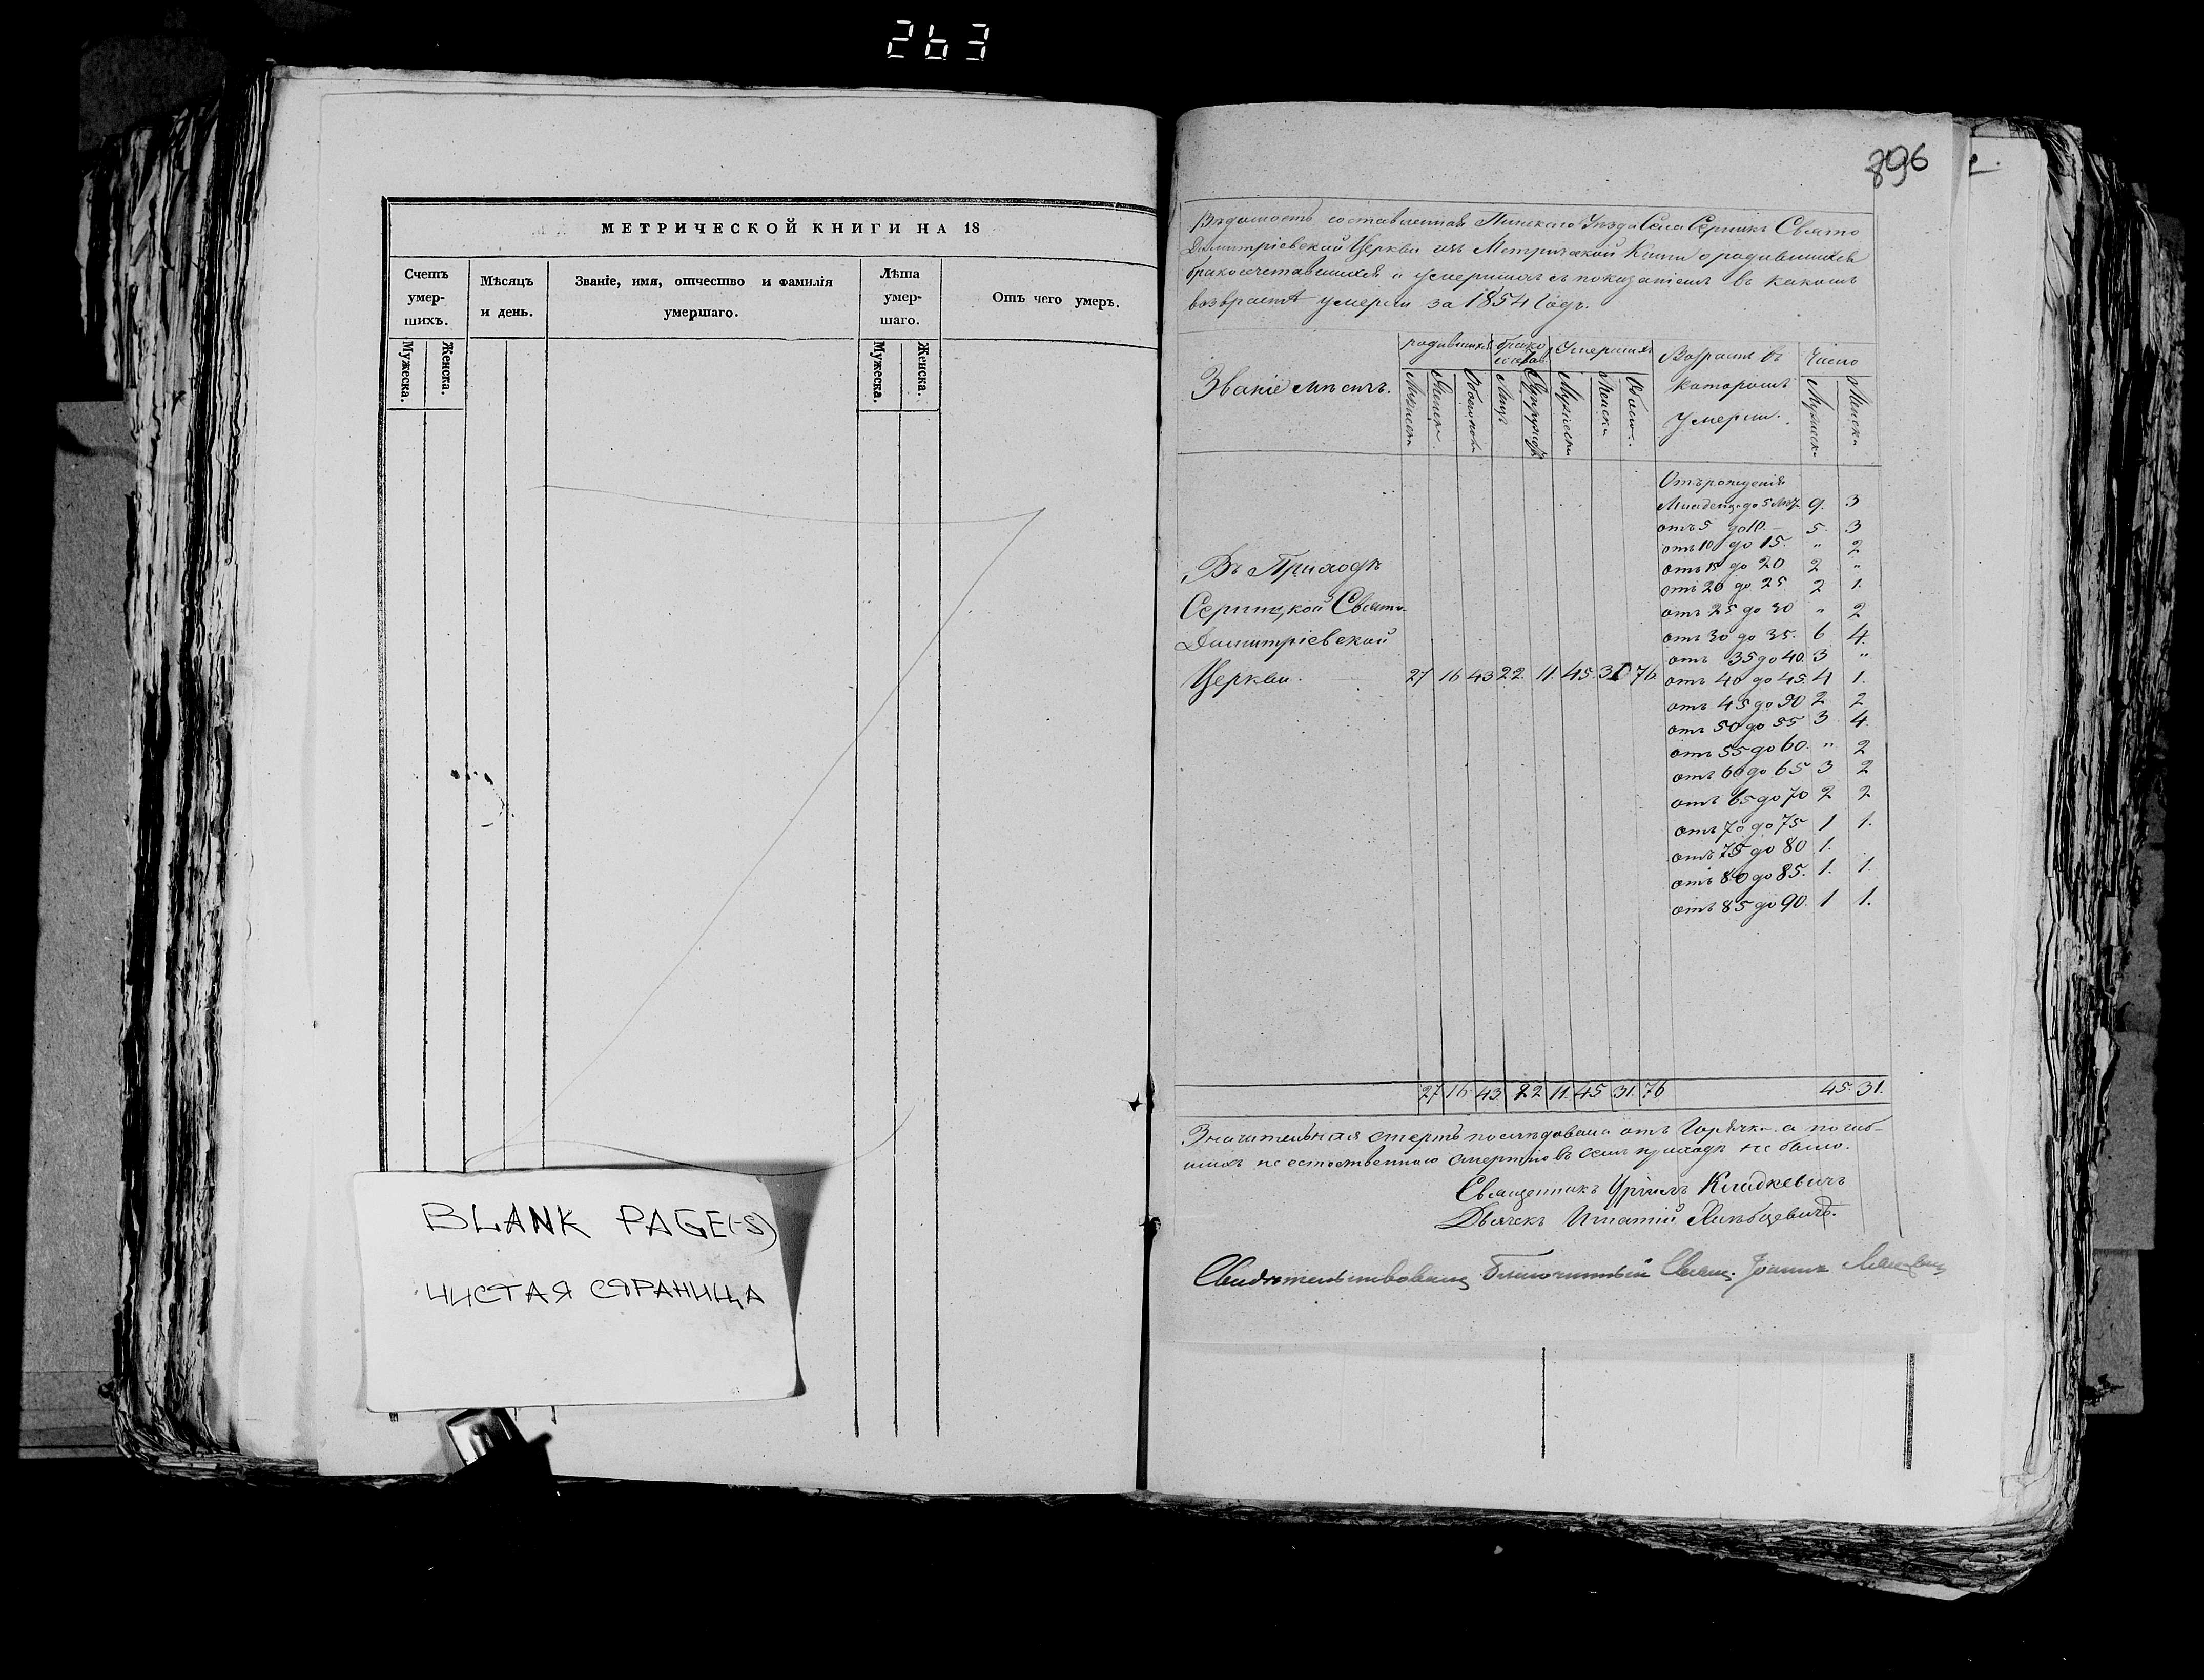 263
МЕТРИЧЕСКОЙ КНИГИ НА 18
Счетъ умер-шихъ.
Мужеска.
Женска.
Мѣсяцъ и день.
Званіе, имя, отчество и фамилія умершаго.
Лѣта умер-шаго.
Мужеска.
Женска.
Отъ чего умеръ.
BLANK PAGE(-S)
ЧИСТАЯ СТРАНИЦА
896
Вѣдомость составленная Пинскаго Уѣзда Села Серникъ Свято
Димитріевской Церкви изъ Метрической Книги о родившихся
бракосочетавшихся и умершихъ съ показаніемъ въ какомъ
возврастѣ умерли за 1854 Годъ.
Званіе мѣстъ.
родившихся
Умершихъ
Возрастъ въ
которомъ
Умерли.
Число
Отъ рожденія
Младенц. до 5 9. 3
отъ 5 до 10. 5. 3
отъ 10 до 15. " 2
отъ 15 до 20 2 "
отъ 20 до 25 2 1.
отъ 25 до 30 " 2
отъ 30 до 35. 6 4.
отъ 35 до 40. 3 "
отъ 40 до 45. 4 1.
отъ 45 до 50 2 2
отъ 50 до 55 3 4.
отъ 55 до 60. " 2
отъ 60 до 65 3 2
отъ 65 до 70 2 2
отъ 70 до 75 1 1.
отъ 75 до 80 1.
отъ 80 до 85. 1. 1.
отъ 85 до 90. 1 1.
Въ Приходѣ
Серницкой Свято-
Димитріевской
Церкви. 27 16 43 22 11. 45. 31 76
27 16 43 22 11. 45 31. 76 45. 31.
Значительная смерть послѣдовала отъ Горячки а погиб-
шихъ не естественною смертію въ семъ приходѣ не было.
Священникъ Кладкевичъ
Дьячекъ Игнатій
Свидѣтельствовалъ Благочинный Свящ. Іоаннъ